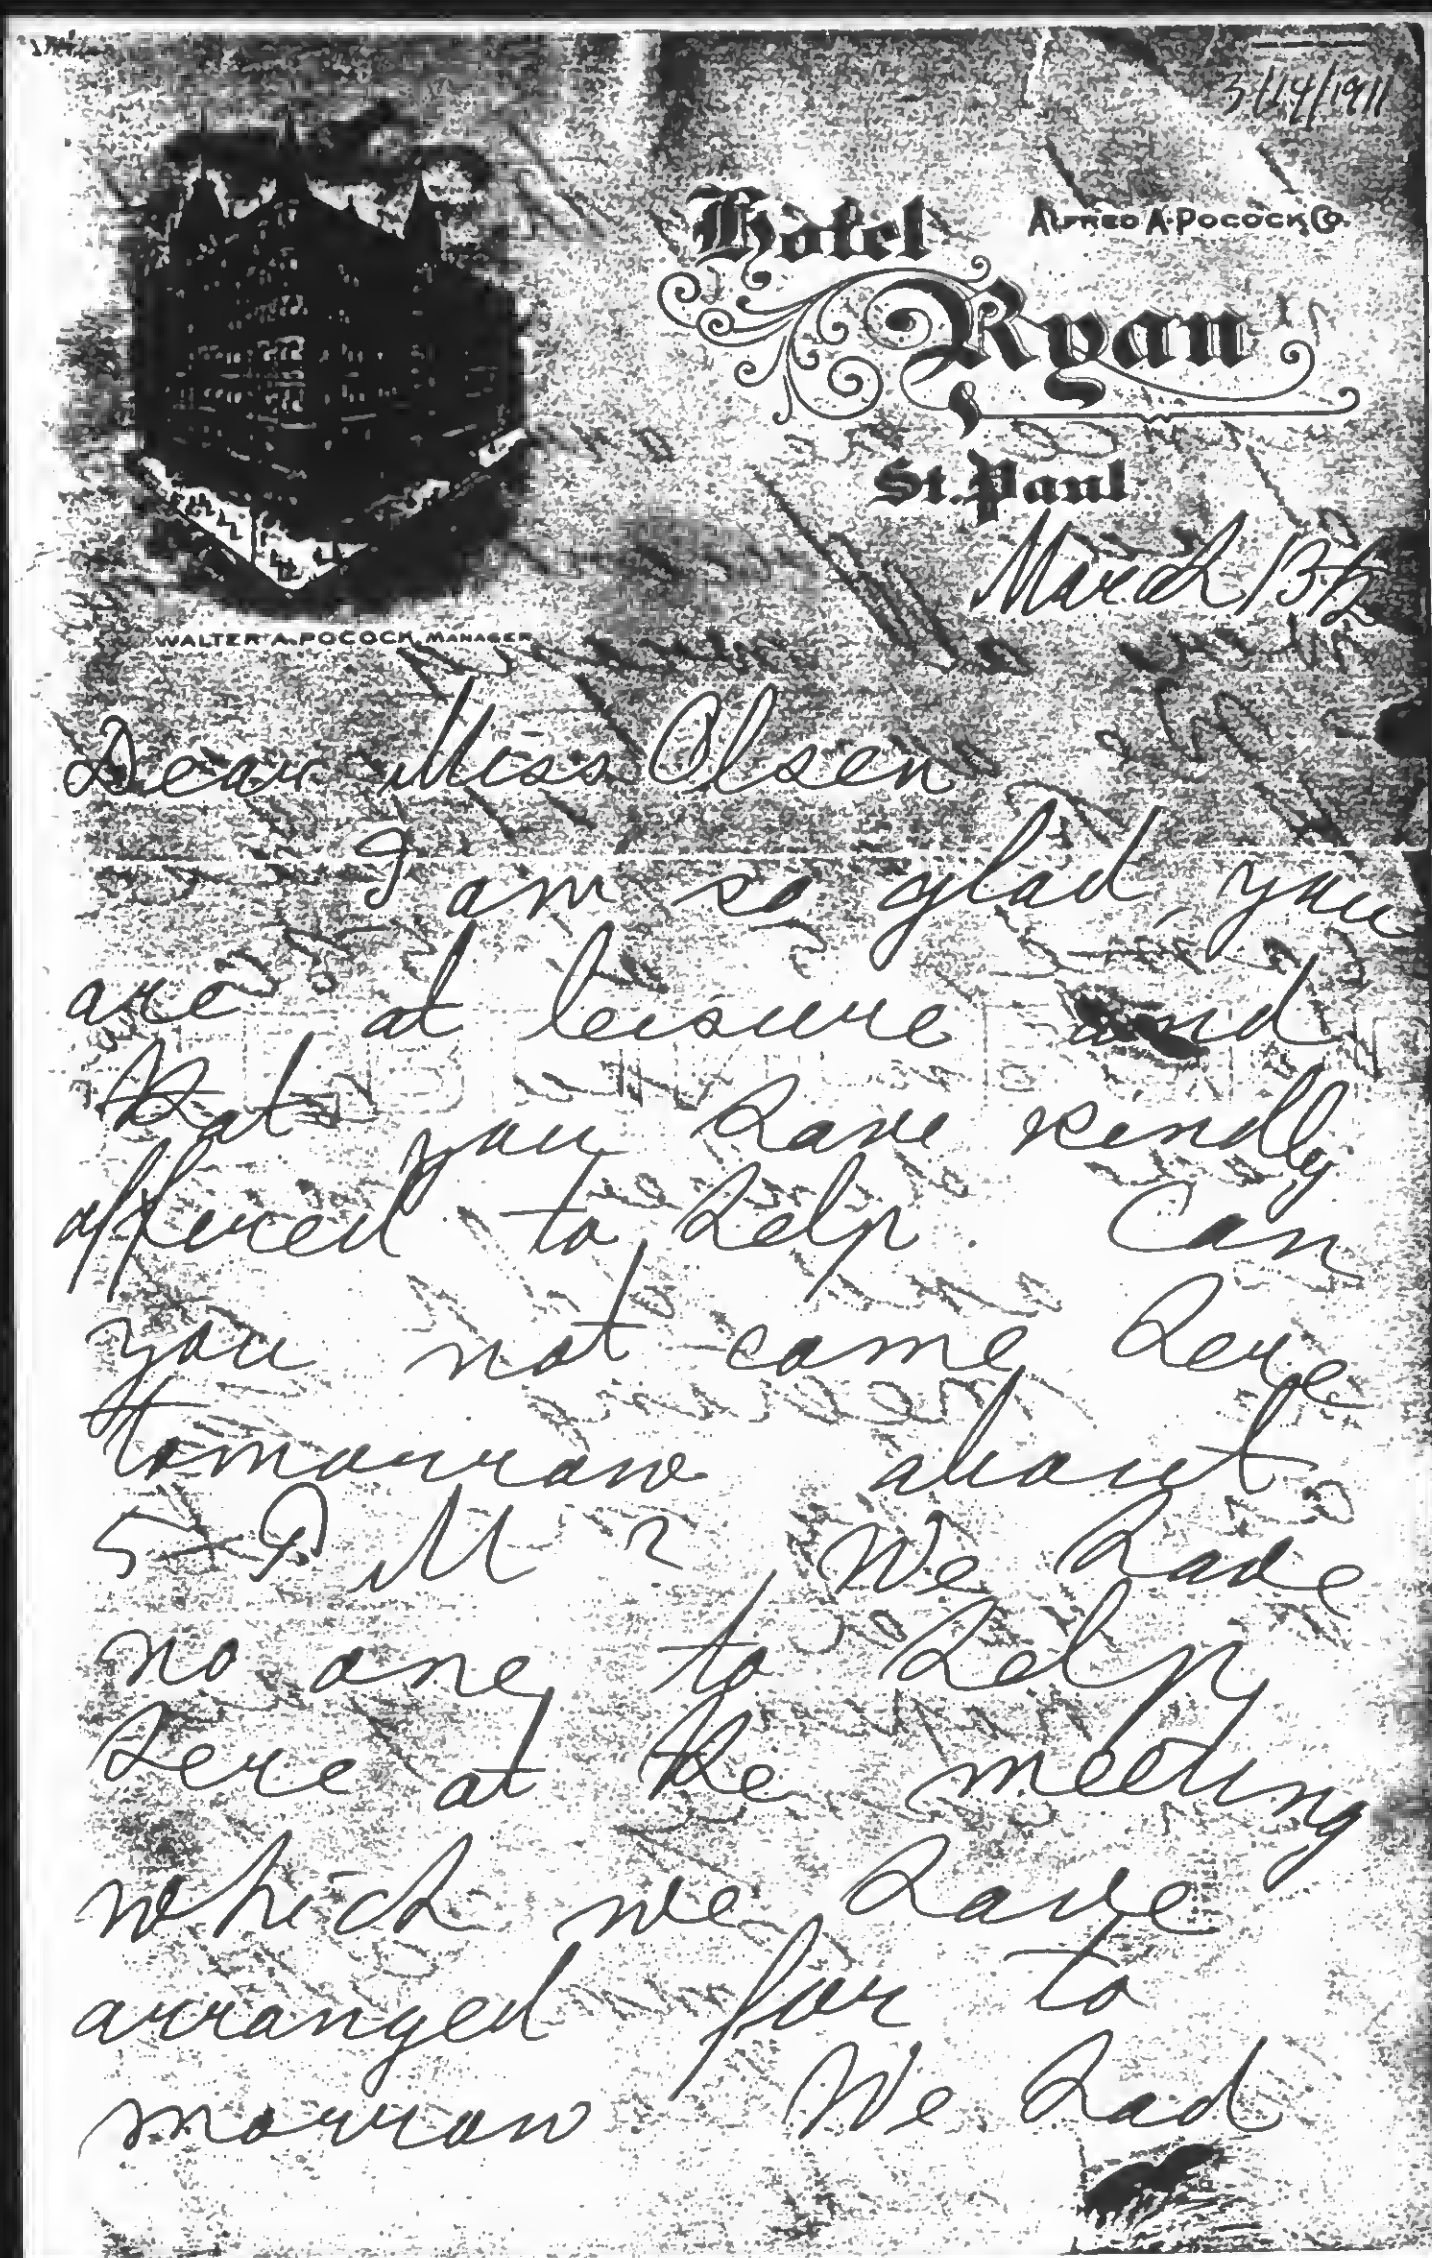 3/14/1911
Hotel
Alfred A. Pocock Co.
Ryan
St. Paul
March 13th
WALTER A. POCOCK, MANAGER
Dear Miss Olsen
I am so glad, you
are at leisure and
that you have kindly
offered to help. Can
you not come here
tomorrow about
5 P M ? We have
no one to help
here at the meeting
which we have
arranged for to
morrow We had